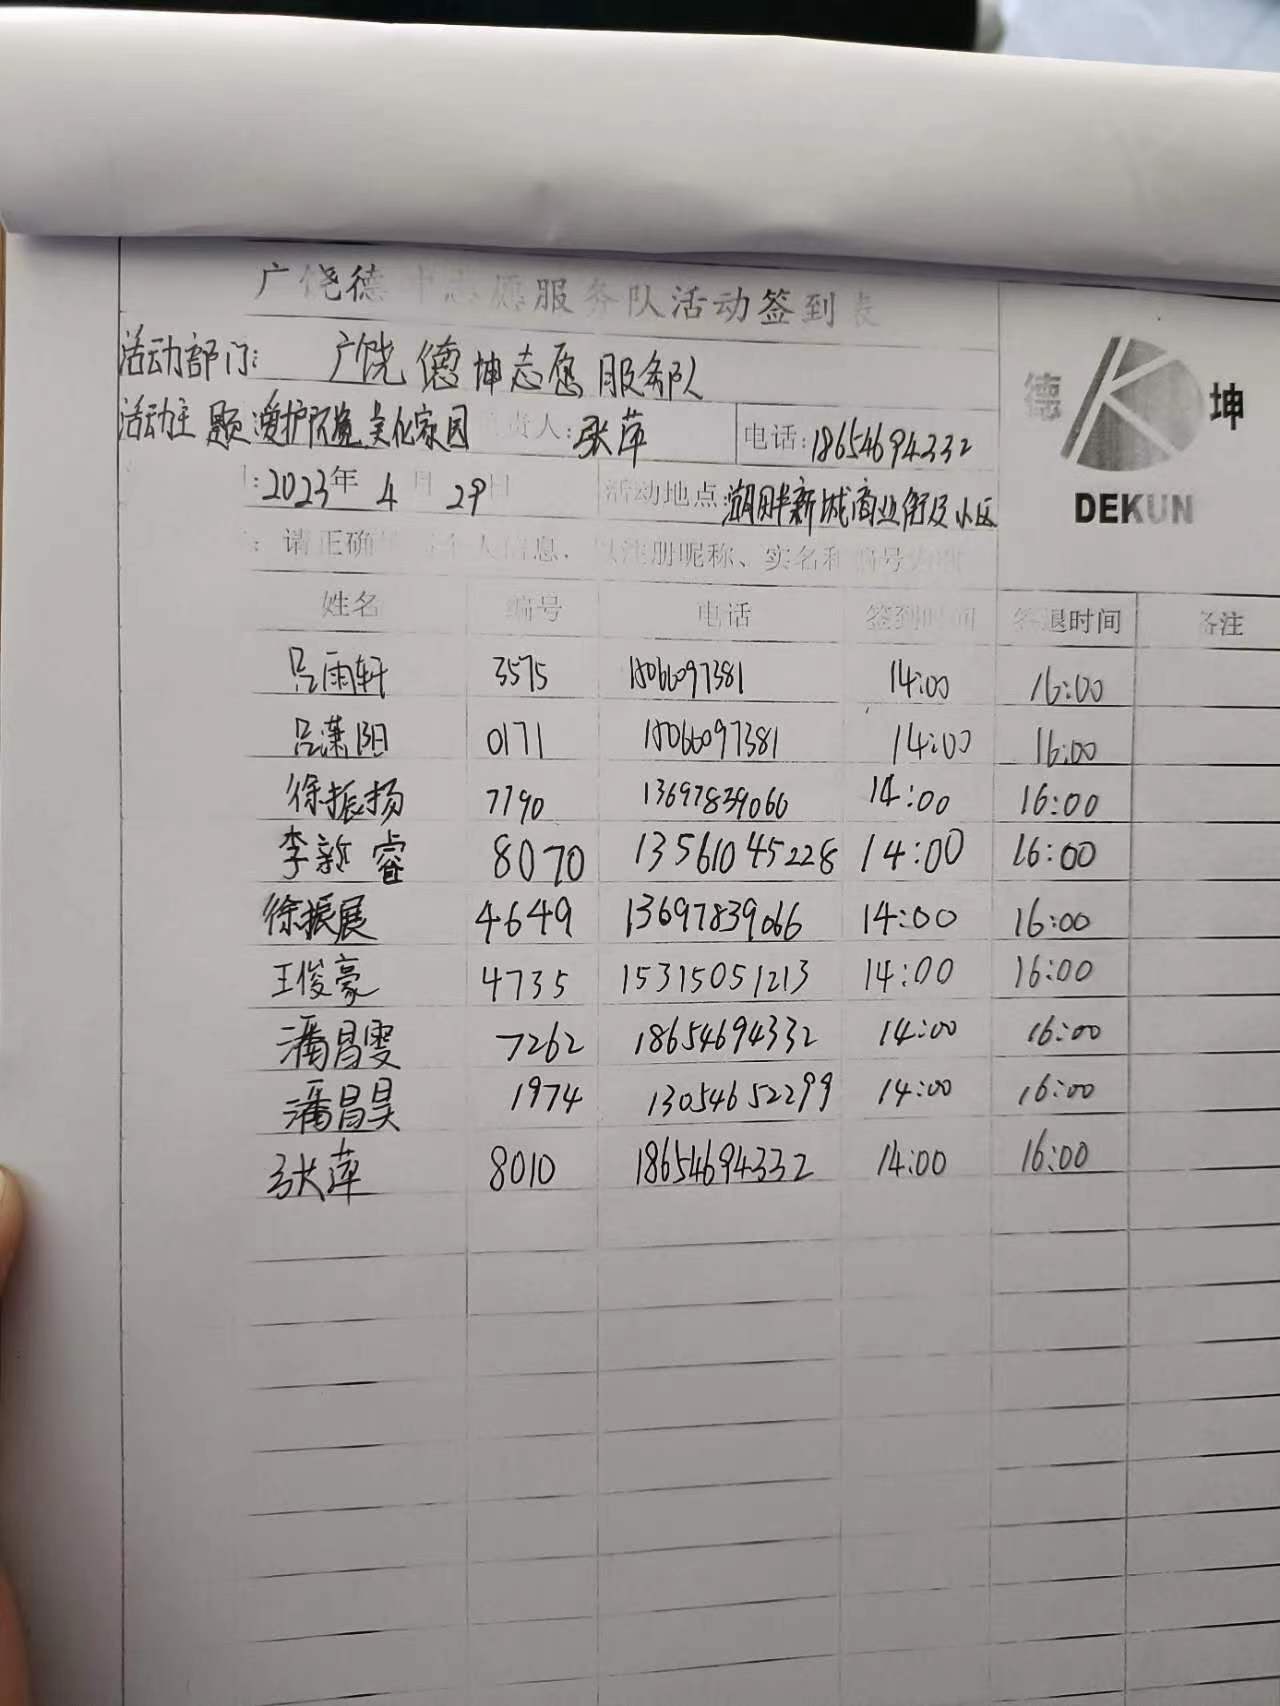 广饶德坤志愿服务队活动签到表
德 坤
DEKUN
活动部门: 广饶德坤志愿服务队
活动主题 爱护环境 美化家园 负责人: 张萍 电话: 18654694332
: 2023年 4月 29日 活动地点: 湖畔新城商业街及小区
: 请正确 个人信息, 以注册昵称、实名和编号
姓名 编号 电话 签到时间 签退时间 备注
吕雨轩 3575 15066097381 14:00 16:00
吕潇阳 0171 15066097381 14:00 16:00
徐振扬 7790 13697839066 14:00 16:00
李新睿 8070 13561045228 14:00 16:00
徐振展 4649 13697839066 14:00 16:00
王俊豪 4735 15315051213 14:00 16:00
潘昌雯 7262 18654694332 14:00 16:00
潘昌昊 1974 13054652299 14:00 16:00
张萍 8010 18654694332 14:00 16:00